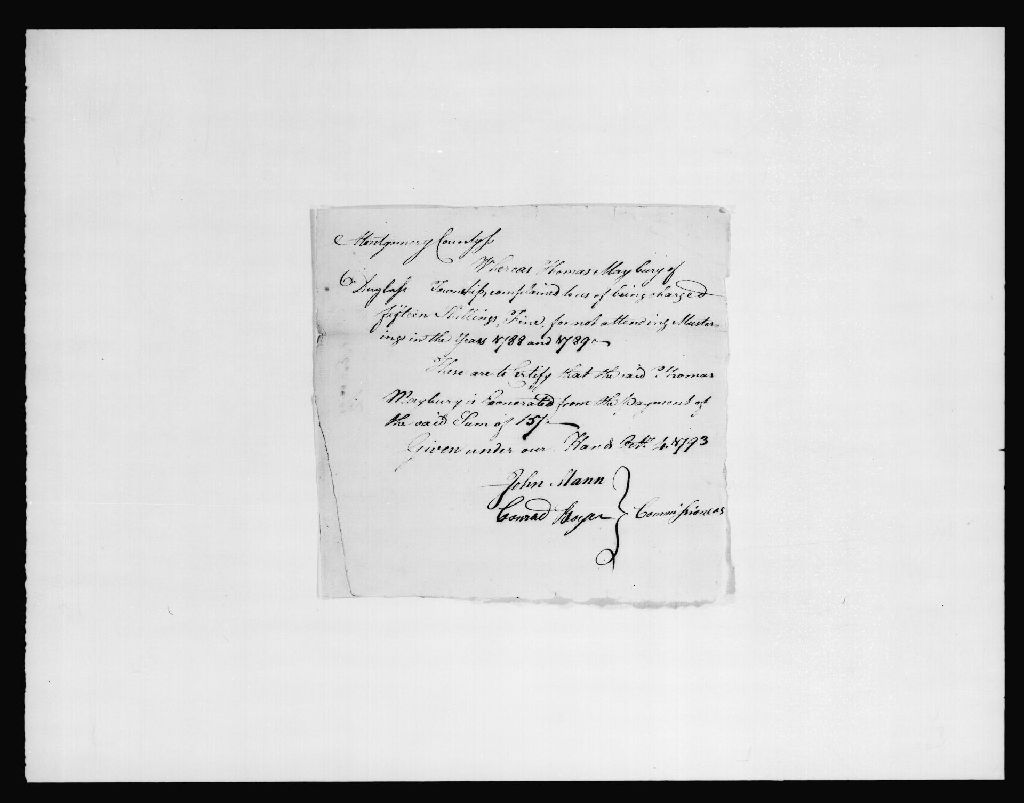 Montgomery County ss
Whereas Thomas Maybury of
Duglass Township complained to us of being charged
fifteen Shillings Fine, for not attending Muster-
ings in the Years 1788 and 1789
These are to Certify that the said Thomas
Maybury is Exonerated from the Payment of
the said Sum of 15/
Given under our Hands Feb. 4 1793
John Mann
Conrad Boyer } Commissioners